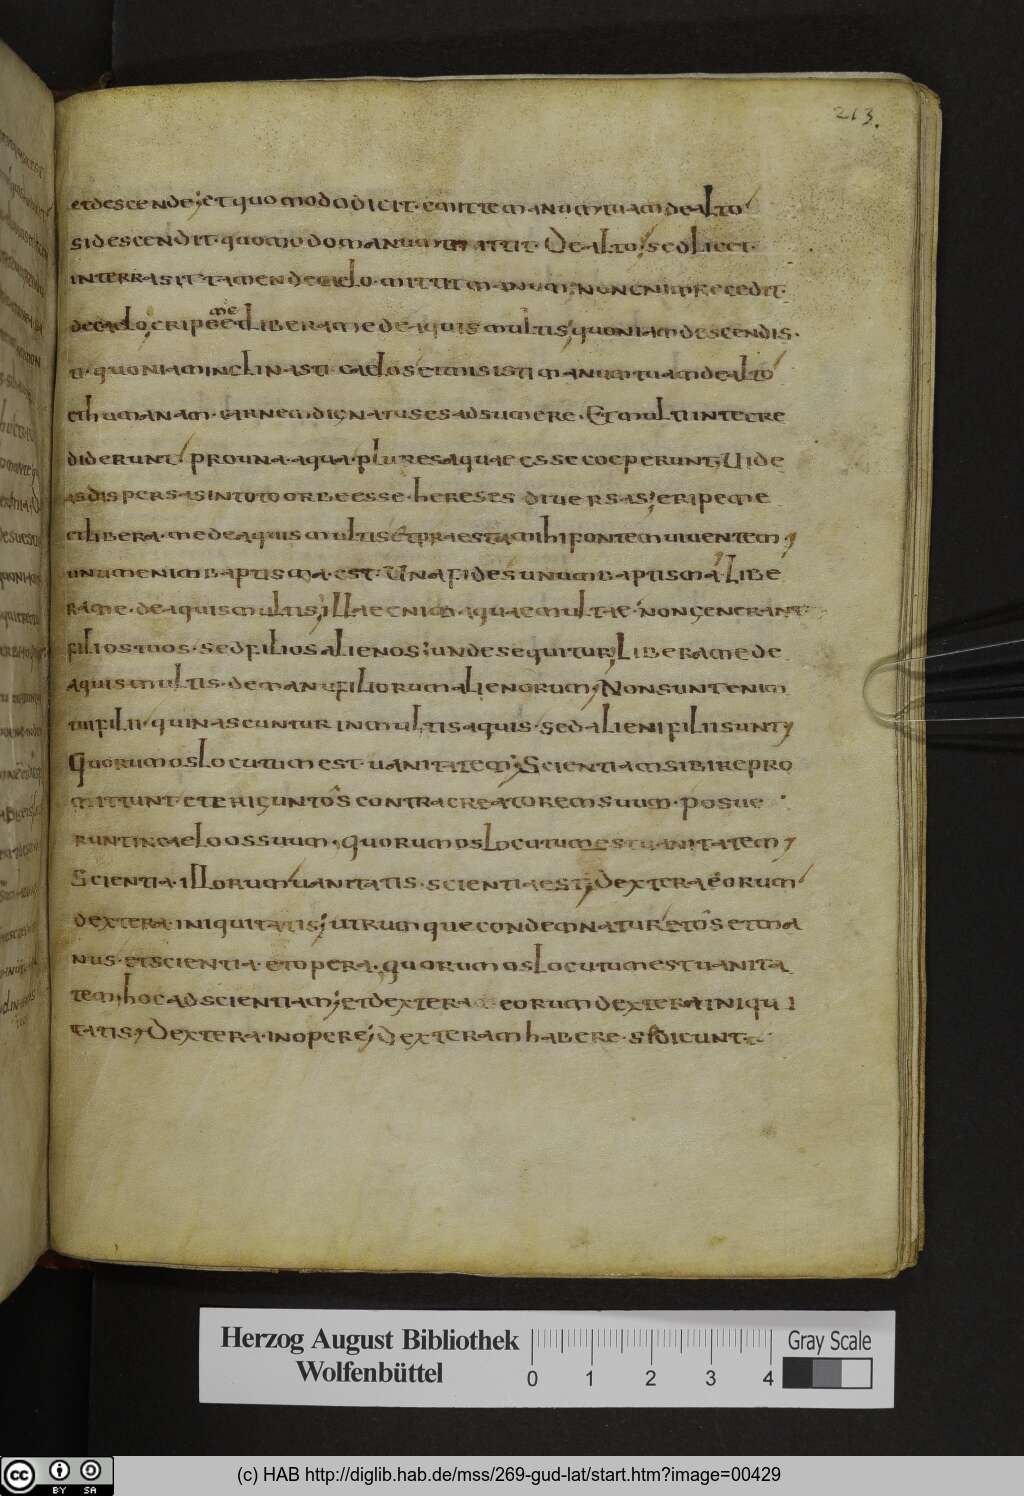 213.
et descende; et quomodo dicit. emitte manum tuam de alto
si descendit. quomodo manum mittit. De alto; sed licet.
in terra sit tamen de caelo. mittit manum; non enim recedit.
me
de caelo; eripe et libera me de aquis multis; quoniam descendis.
ti. quoniam inclinasti caelos et misisti manum tuam de alto
et humanam. carnem dignatus es adsumere. Et multi in te cre
diderunt. pro una. aqua. plures aquae esse coeperunt; Uide
as dispersas in toto orbe esse. hereses diuersas; eripe me
et libera. me de aquis multis et praesta mihi fontem uiuentem;
unum enim baptisma. est. Una fides unum baptisma. Libe
ra me. de aquis multis; illae enim. aquae multae. non generant
filios tuos. sed filios alienos; unde sequitur; Libera me de
aquis multis. de manu filiorum alienorum; Non sunt enim
tui filii. qui nascuntur in multis aquis. sed alieni filii sunt;
Quorum os locutum est uanitatem; Scientiam sibi repro
mittunt et erigunt os contra creatorem suum. posue
runt in caelo os suum, quorum os locutum est uanitatem;
Scientia. illorum uanitatis. scientia est; Dextera eorum
dextera iniquitatis; utrumque condemnatur et os et ma
nus. et scientia. et opera. quorum os locutum est uanita
tem; hoc ad scientiam; et dextera eorum dextera iniqui
tatis; Dextera. in opere; Dexteram habere. se dicunt.
Herzog August Bibliothek
Wolfenbüttel
0 1 2 3 4
Gray Scale
cc BY SA
(c) HAB http://diglib.hab.de/mss/269-gud-lat/start.htm?image=00429